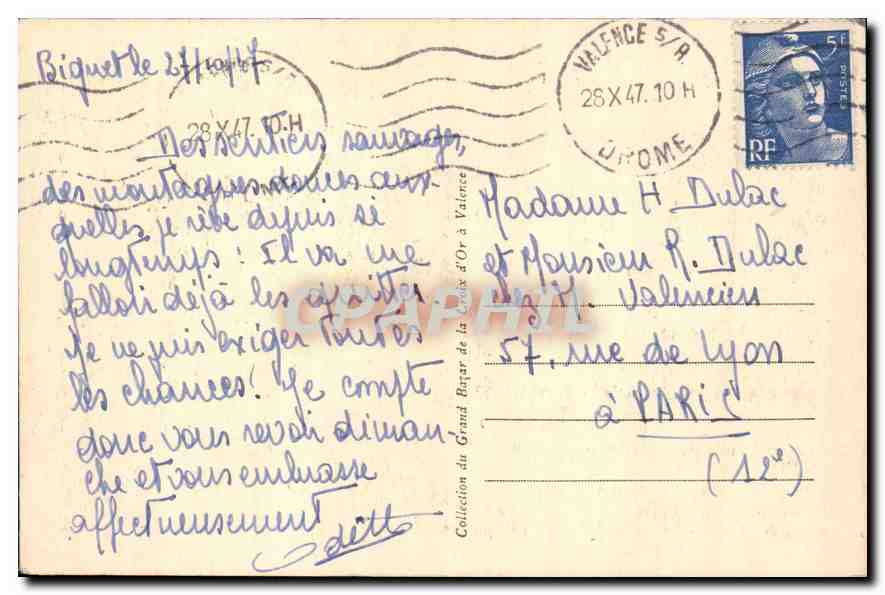 Biguet le 27/10/47
VALENCE S/R.
28 X 47. 10 H
DROME
28 X 47. 10 H
5F
POSTES
RF
Des sentiers sauvages,
des montagnes douces aux-
quelles je rêve depuis si
longtemps! Il va me
falloir déjà les quitter.
Je ne puis exiger toutes
les chances! Je compte
donc vous revoir diman-
che et vous embrasse
affectueusement
Odette
Collection du Grand Bazar de la Croix d'Or à Valence
Madame H Dulac
et Monsieur R. Dulac
M. Valencien
57, rue de Lyon
à PARIS
(12e)
CPAPHIL